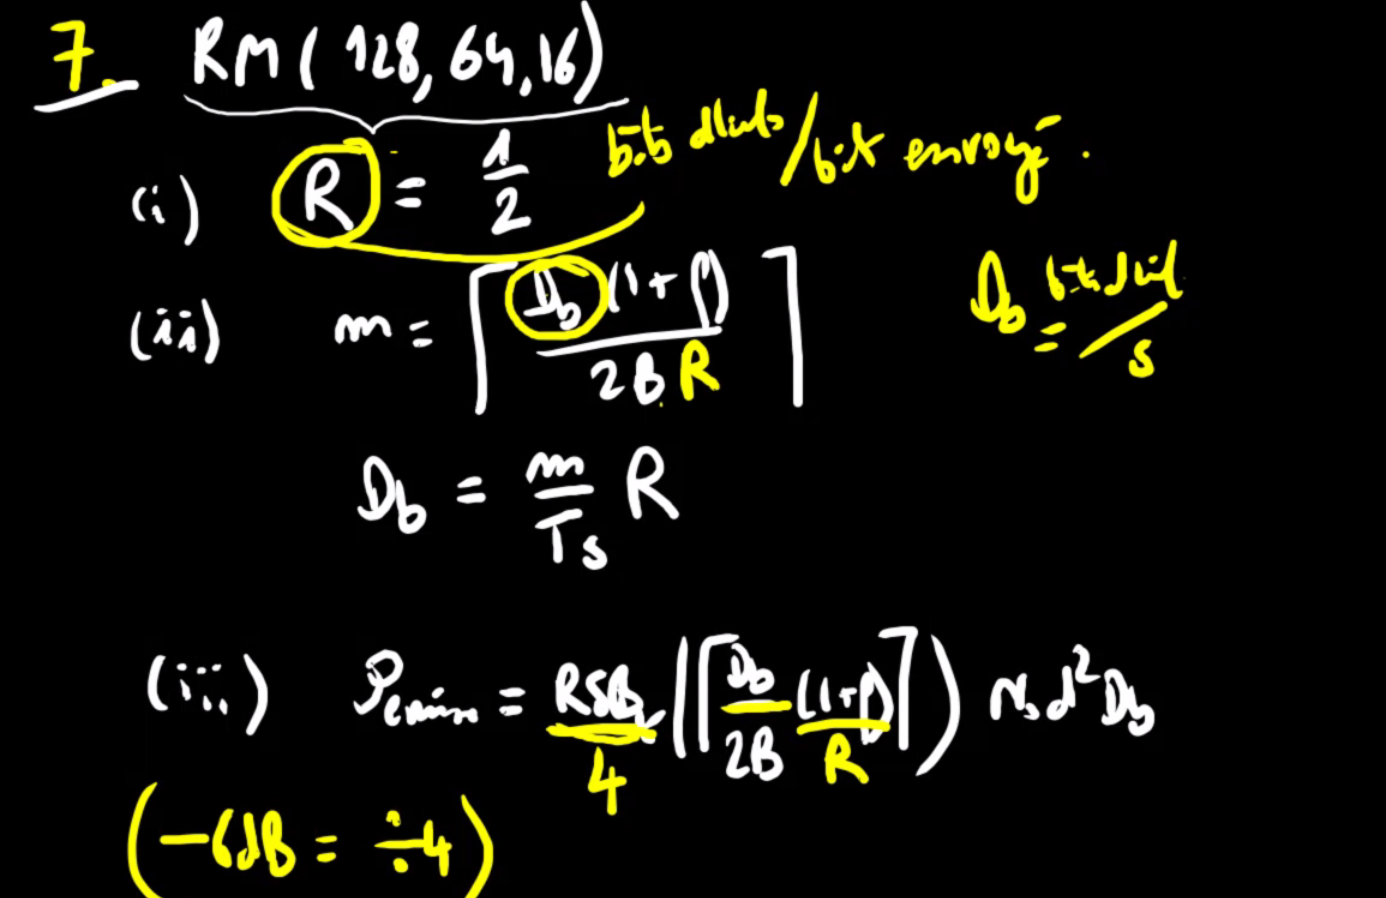 7. RM(128, 64, 16)
(i) R = 1/2 bits utiles/bit envoyé.
(ii) m = ⌈Db(1+ρ)/2BR⌉ Db = bits utiles/s
Db = m/Ts R
(iii) Pémission = RSB/4 (⌈Db/2B (1+ρ)/R⌉) N₀d²Db
(-6dB = ÷4)